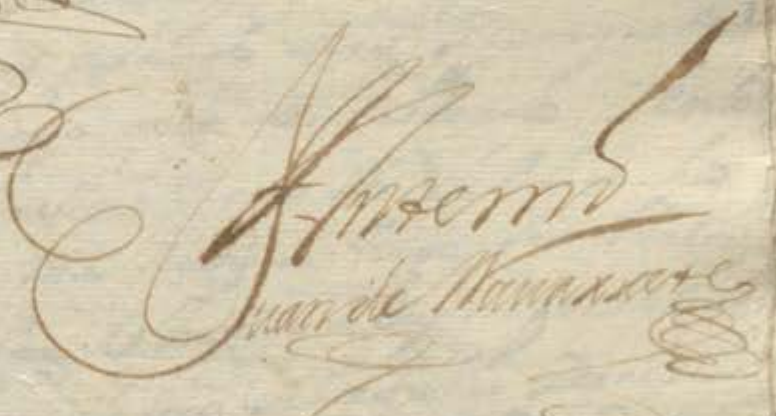 Ante mi
Juan de Navarrete